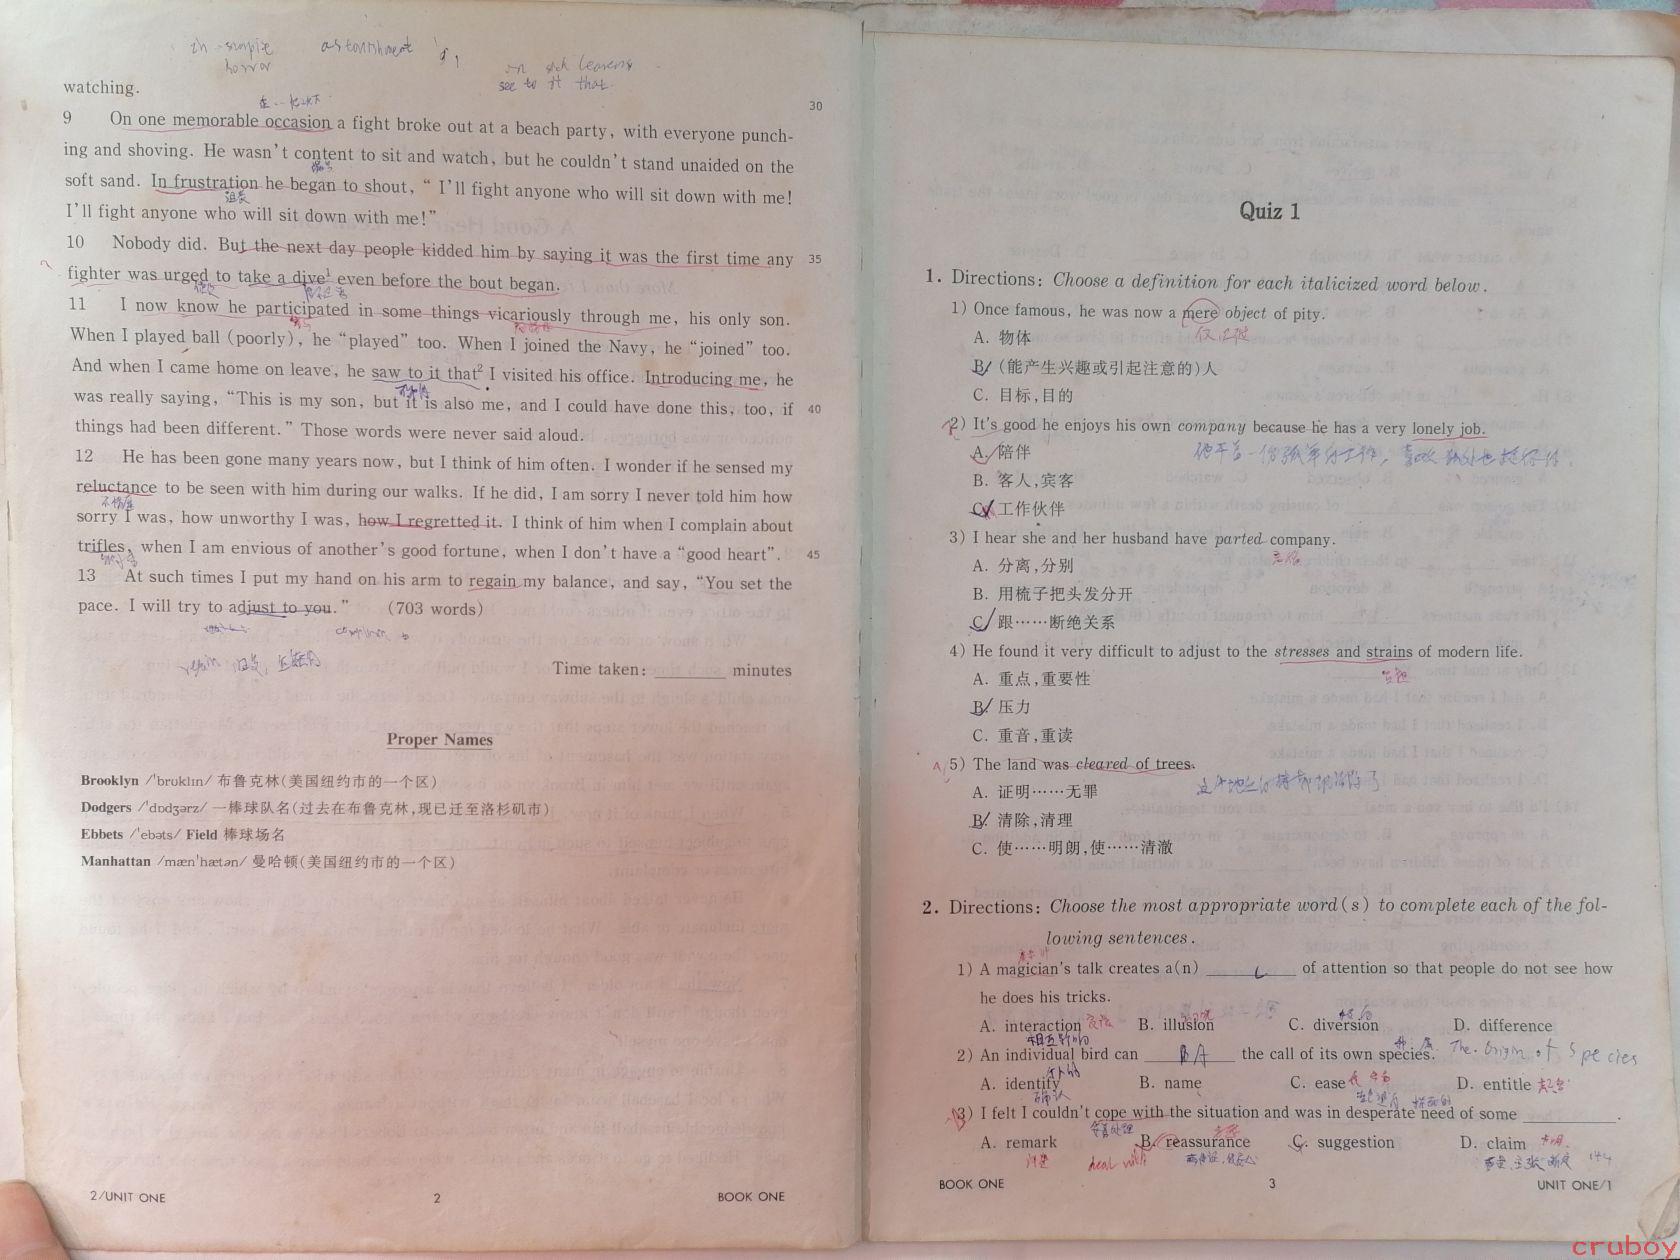 astonishment
horror
see to it that
watching.
30
9 On one memorable occasion a fight broke out at a beach party, with everyone punch-
ing and shoving. He wasn't content to sit and watch, but he couldn't stand unaided on the
soft sand. In frustration he began to shout, “ I'll fight anyone who will sit down with me!
沮丧
I'll fight anyone who will sit down with me!”
10 Nobody did. But the next day people kidded him by saying it was the first time any 35
fighter was urged to take a dive1 even before the bout began.
11 I now know he participated in some things vicariously through me, his only son.
When I played ball (poorly), he “played” too. When I joined the Navy, he “joined” too.
And when I came home on leave, he saw to it that2 I visited his office. Introducing me, he
was really saying, “This is my son, but it is also me, and I could have done this, too, if 40
things had been different.” Those words were never said aloud.
12 He has been gone many years now, but I think of him often. I wonder if he sensed my
reluctance to be seen with him during our walks. If he did, I am sorry I never told him how
不情愿
sorry I was, how unworthy I was, how I regretted it. I think of him when I complain about
trifles, when I am envious of another's good fortune, when I don't have a “good heart”. 45
13 At such times I put my hand on his arm to regain my balance, and say, “You set the
pace. I will try to adjust to you.” (703 words)
Time taken: ________ minutes
Proper Names
Brooklyn /'brʊklɪn/ 布鲁克林(美国纽约市的一个区)
Dodgers /'dɒdʒərz/ 一棒球队名(过去在布鲁克林,现已迁至洛杉矶市)
Ebbets /'ebəts/ Field 棒球场名
Manhattan /mæn'hætən/ 曼哈顿(美国纽约市的一个区)
2/UNIT ONE 2 BOOK ONE
Quiz 1
1. Directions: Choose a definition for each italicized word below.
1) Once famous, he was now a mere object of pity.
A. 物体
B. (能产生兴趣或引起注意的)人
C. 目标,目的
2) It's good he enjoys his own company because he has a very lonely job.
A. 陪伴
B. 客人,宾客
C. 工作伙伴
3) I hear she and her husband have parted company.
A. 分离,分别
B. 用梳子把头发分开
C. 跟……断绝关系
4) He found it very difficult to adjust to the stresses and strains of modern life.
A. 重点,重要性
B. 压力
C. 重音,重读
5) The land was cleared of trees.
A. 证明……无罪
B. 清除,清理
C. 使……明朗,使……清澈
2. Directions: Choose the most appropriate word(s) to complete each of the fol-
lowing sentences.
1) A magician's talk creates a(n) ________ of attention so that people do not see how
he does his tricks.
A. interaction B. illusion C. diversion D. difference
相互影响
2) An individual bird can ____BA____ the call of its own species. The Origin of Species
A. identify B. name C. ease D. entitle
确认
3) I felt I couldn't cope with the situation and was in desperate need of some ________.
A. remark B. reassurance C. suggestion D. claim
deal with
BOOK ONE 3 UNIT ONE/1
cruboy